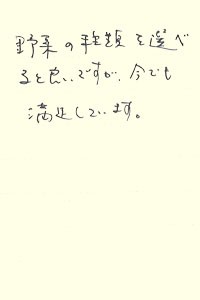 野菜の種類を選べ
ると良いですが、今でも
満足しています。